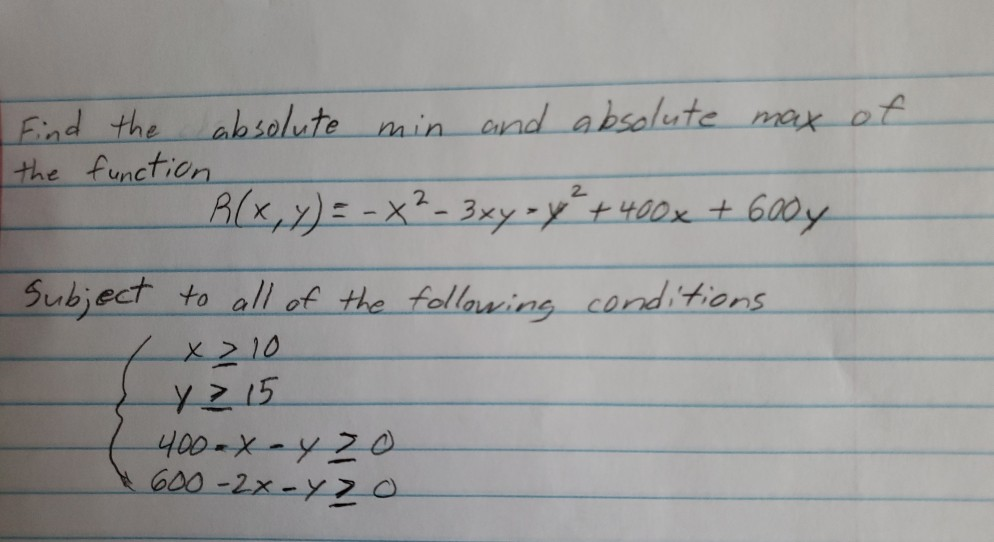 Find the absolute min and absolute max of
the function
R(x,y) = -x² - 3xy - y² + 400x + 600y
Subject to all of the following conditions
x ≥ 10
y ≥ 15
400 - x - y ≥ 0
600 - 2x - y ≥ 0